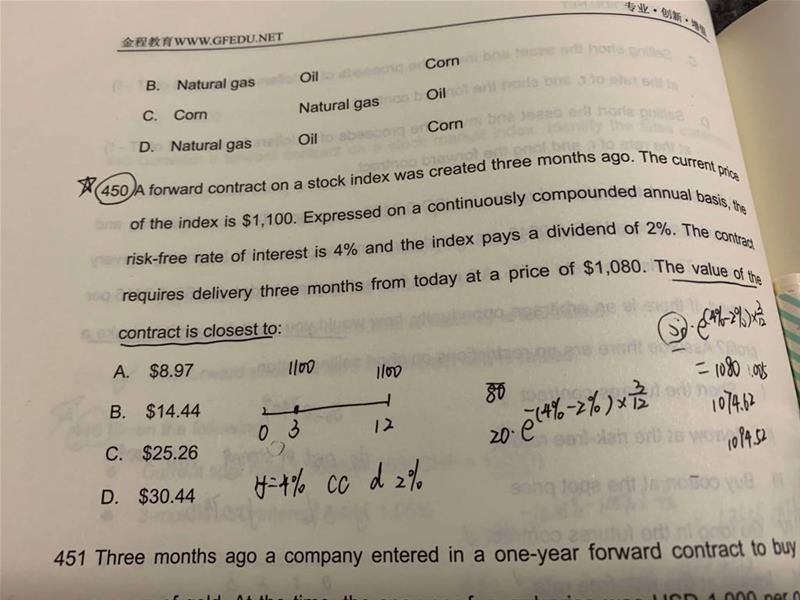 金程教育WWW.GFEDU.NET
专业·创新·增值
B. Natural gas Oil Corn
C. Corn Natural gas Oil
D. Natural gas Oil Corn
450 A forward contract on a stock index was created three months ago. The current price
of the index is $1,100. Expressed on a continuously compounded annual basis, the
risk-free rate of interest is 4% and the index pays a dividend of 2%. The contract
requires delivery three months from today at a price of $1,080. The value of the
contract is closest to:
A. $8.97
B. $14.44
C. $25.26
D. $30.44
1100 1100
0 3 12
r=4% CC d 2%
80
20·e^-(4%-2%)×3/12
S0·e^(4%-2%)×3/12
=1080
1074.62
1094.52
451 Three months ago a company entered in a one-year forward contract to buy
of gold. At the time, the